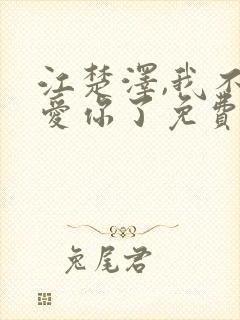 江楚澤,我不
愛你了免費
兔尾君